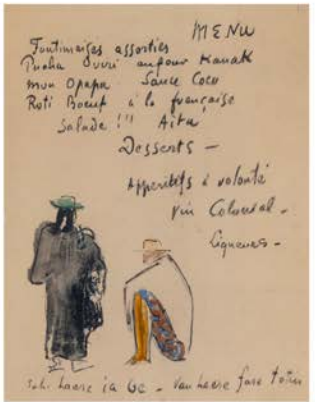 MENU
Fontimaises assorties
Pucha ouri aufour Kanak
mua Opapa Sauce Coco
Roti Boeuf à la française
Salade !!! Aita
Desserts —
Apperitifs à volonté
vin Colonial -
Liqueurs -
haere ia oe - haere fare